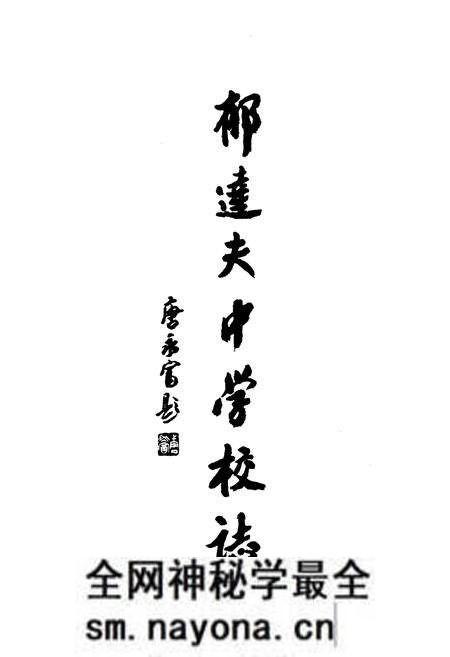 郁達夫中学校誌
唐永富题
全网神秘学最全
sm.nayona.cn